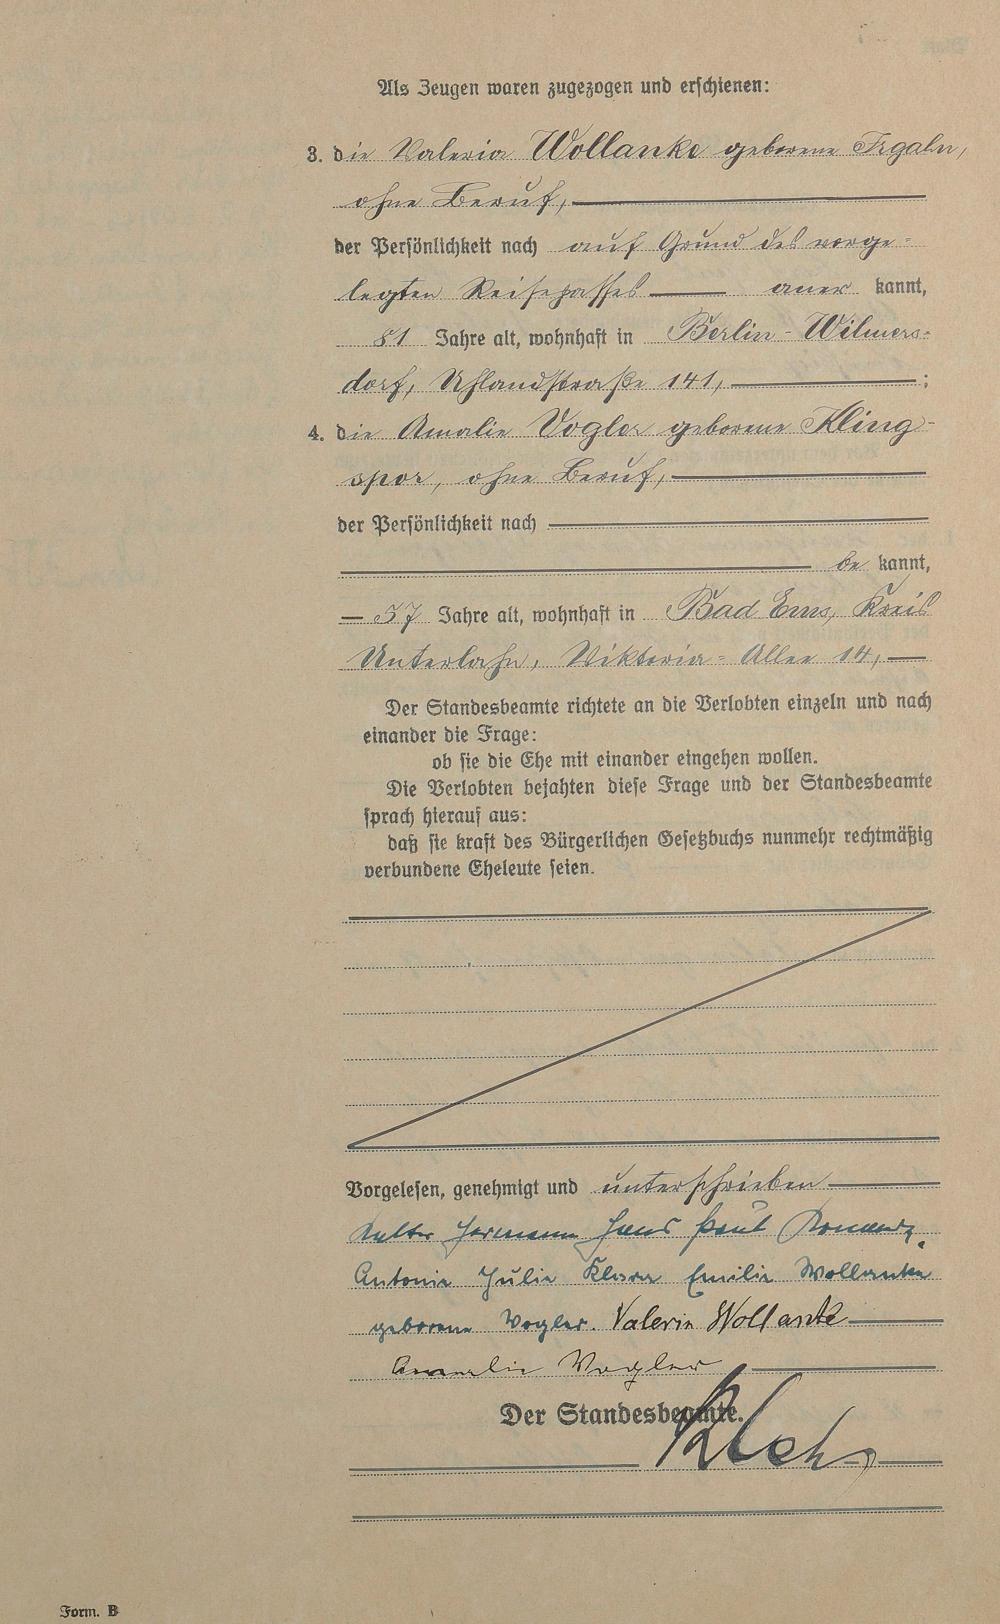 Als Zeugen waren zugezogen und erschienen:
3. die Valeria Wollanke geborene
ohne Beruf,
der Persönlichkeit nach auf Grund des vorge-
legten Reisepasses aner kannt,
Jahre alt, wohnhaft in Berlin-Wilmers-
dorf, Uhlandstraße 141, ;
4. die Amalie Vogler geborene Kling-
spor, ohne Beruf,
der Persönlichkeit nach
be kannt,
57 Jahre alt, wohnhaft in Bad Ems, Kreis
Unterlahn, Viktoria-Allee 14,
Der Standesbeamte richtete an die Verlobten einzeln und nach
einander die Frage:
ob sie die Ehe mit einander eingehen wollen.
Die Verlobten bejahten diese Frage und der Standesbeamte
sprach hierauf aus:
daß sie kraft des Bürgerlichen Gesetzbuchs nunmehr rechtmäßig
verbundene Eheleute seien.
Vorgelesen, genehmigt und unterschrieben
Hermann Hans Paul
Antonie Julie Klara Emilie Wollanke
geborene Vogler. Valeria Wollanke
Amalie Vogler
Der Standesbeamte.
Form. B